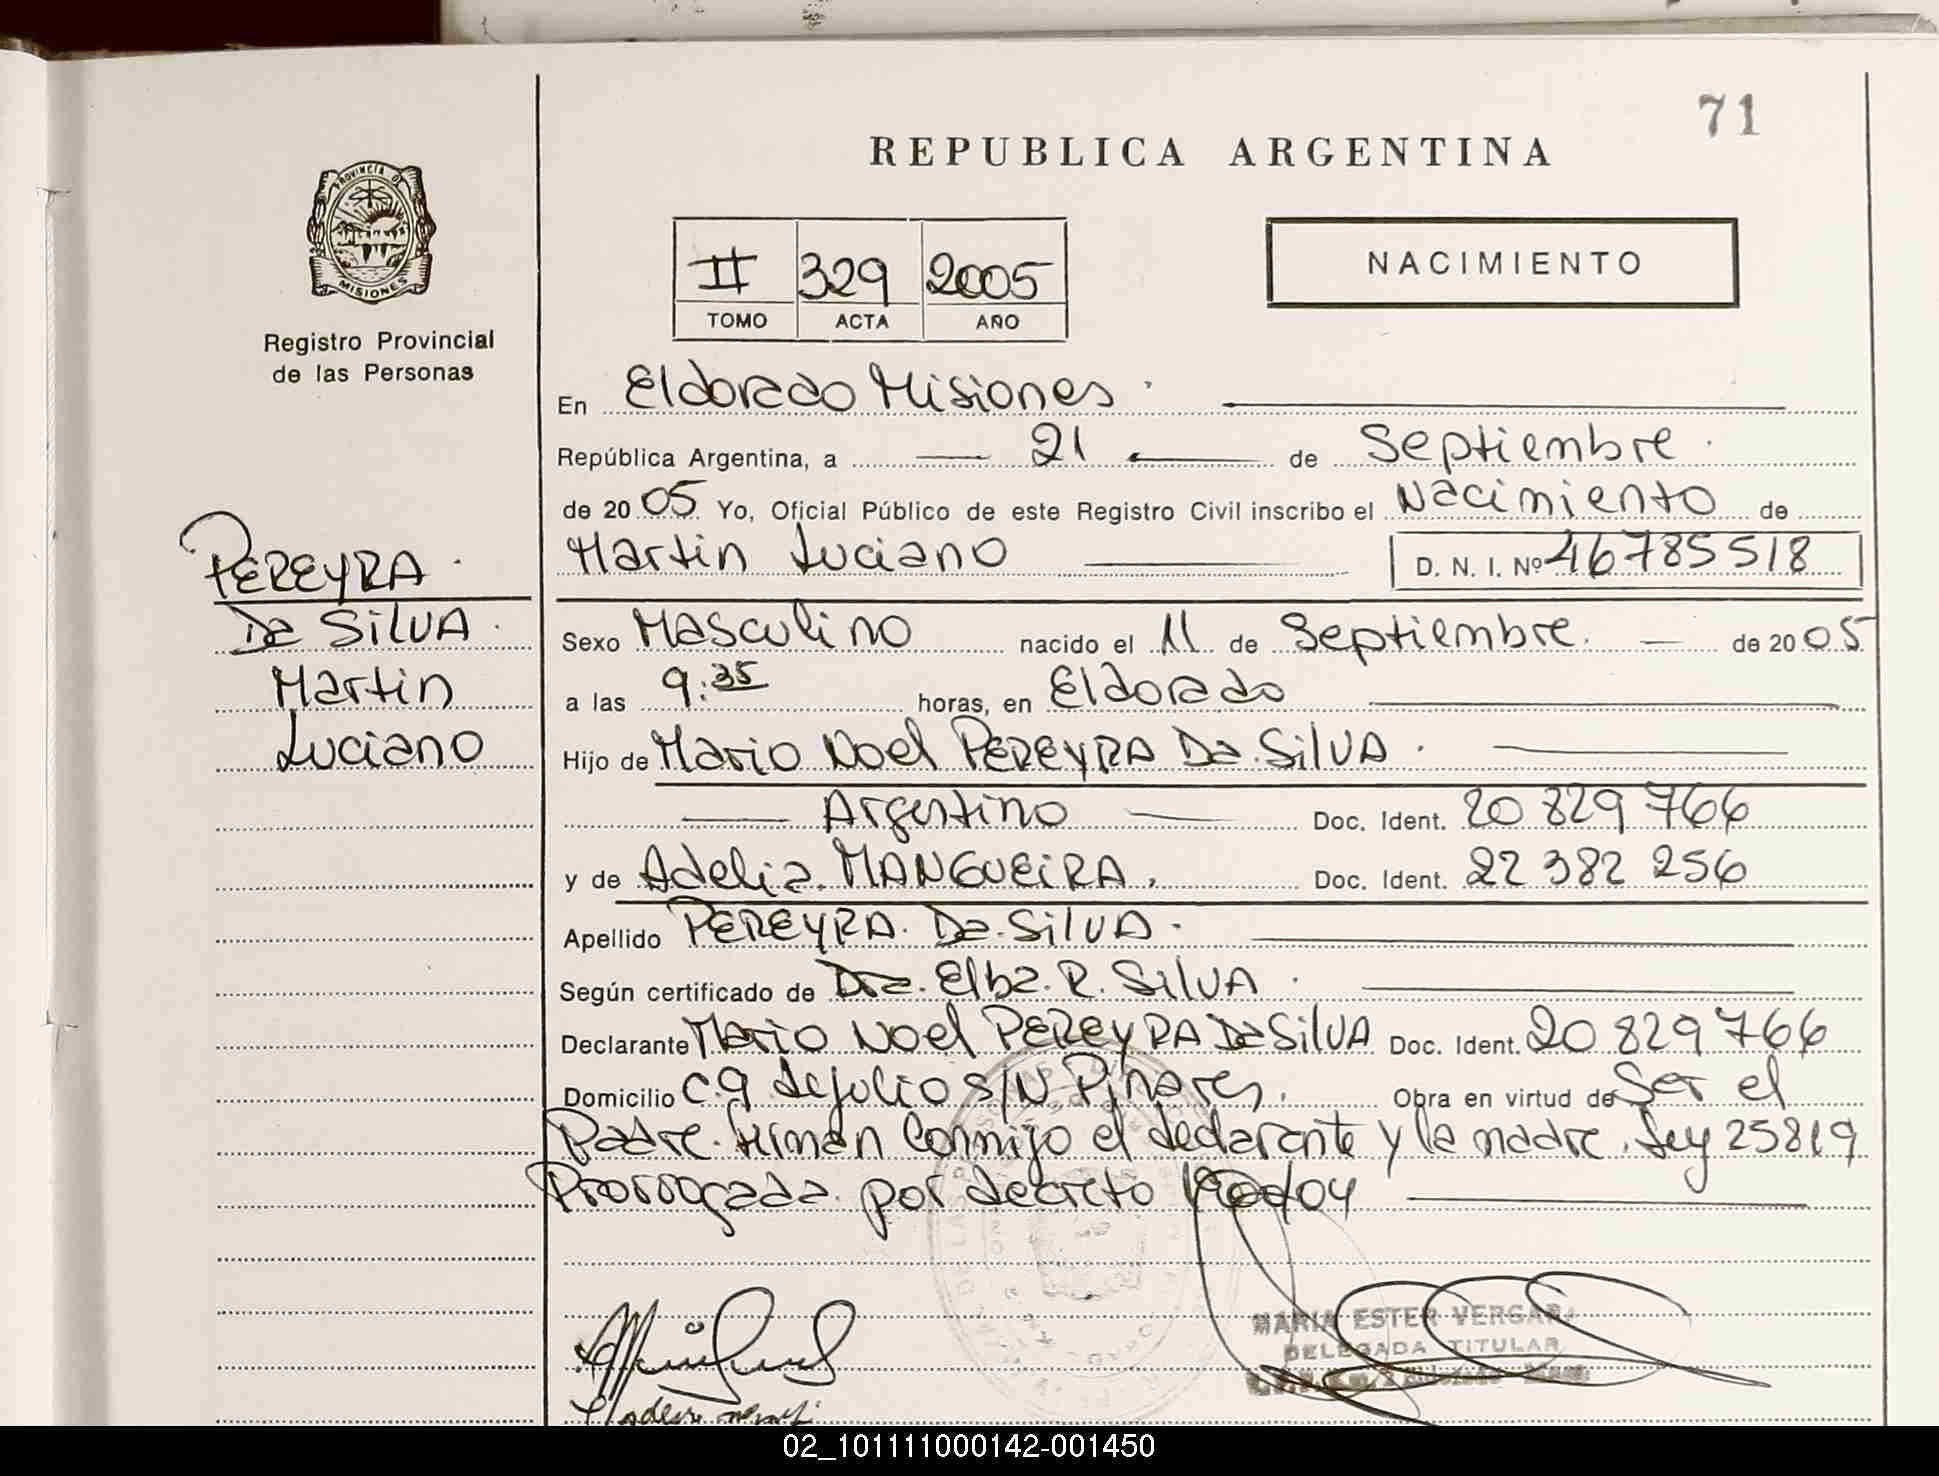 71
REPUBLICA ARGENTINA
PROVINCIA DE
MISIONES
Registro Provincial
de las Personas
II 329 2005
TOMO ACTA AÑO
NACIMIENTO
En Eldorado Misiones.
República Argentina, a 21 de Septiembre.
de 2005 Yo, Oficial Público de este Registro Civil inscribo el Nacimiento de
Martin Luciano D. N. I. Nº 46785518
PEREYRA.
Da SilVA.
Martin
Luciano
Sexo Masculino nacido el 11 de Septiembre. de 2005
a las 9:35 horas, en Eldorado
Hijo de Mario Noel PEREYRA Da.SilVA.
Argentino Doc. Ident. 20 829 766
y de Adelia. MANGUEiRA. Doc. Ident. 22 382 256
Apellido PEREYRA. Da.SilVA.
Según certificado de Dra. Elba. R. SilVA.
Declarante Mario Noel PEREYRA Da SilVA Doc. Ident. 20 829 766
Domicilio C.9 de julio s/N Pinares. Obra en virtud de Ser el
Padre. Firman Conmigo el declarante y la madre. Ley 25819
Prorrogada por decreto
MARIA ESTER VERGARA
DELEGADA TITULAR
02_101111000142-001450